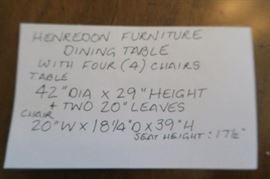 HENREDON FURNITURE
DINING TABLE
WITH FOUR (4) CHAIRS
TABLE
42" DIA X 29" HEIGHT
+ TWO 20" LEAVES
CHAIR
20"W X 18 1/4"D X 39"H
SEAT HEIGHT: 17 1/2"